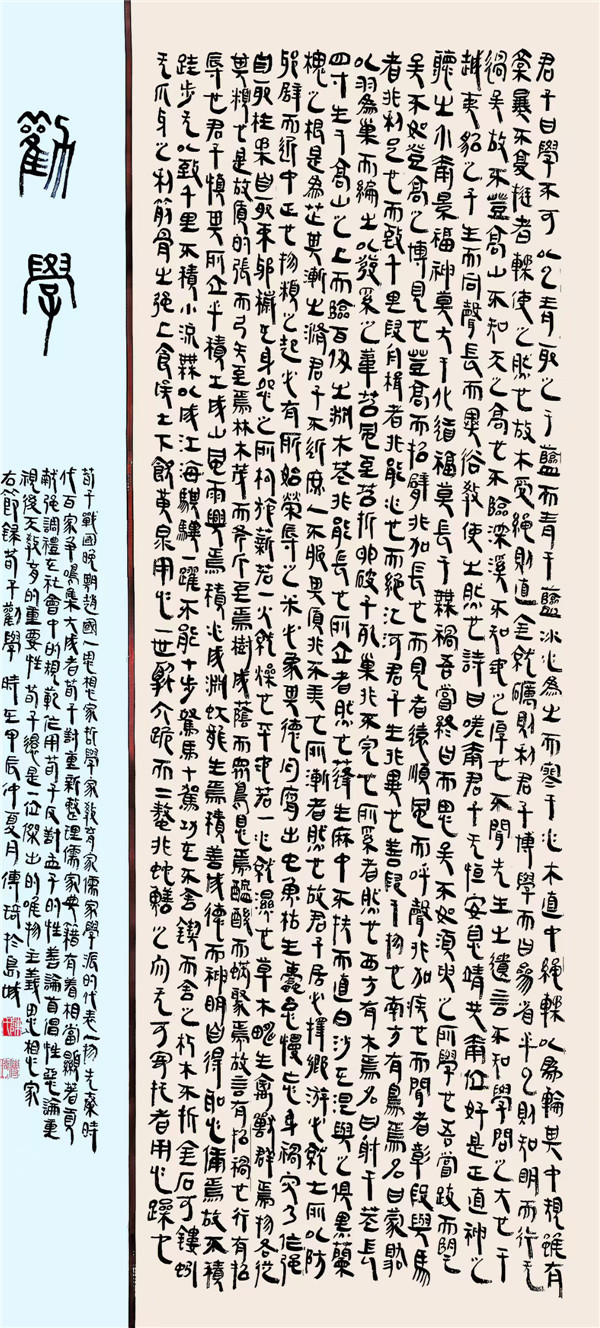 君子曰學不可以已青取之于藍而青于藍冰水為之而寒于水木直中繩輮以為輪其中規雖有
槁暴不復挺者輮使之然也故木受繩則直金就礪則利君子博學而日參省乎己則知明而行无
過矣故不登高山不知天之高也不臨深溪不知地之厚也不聞先生之遺言不知學問之大也干
越夷貉之子生而同聲長而異俗教使之然也詩曰嗟爾君子无恒安息靖共爾位好是正直神之
聽之介爾景福神莫大于化道福莫長于無禍吾嘗終日而思矣不如須臾之所學也吾嘗跂而望
矣不如登高之博見也登高而招臂非加長也而見者遠順風而呼聲非加疾也而聞者彰假輿馬
者非利足也而致千里假舟楫者非能水也而絕江河君子生非異也善假于物也南方有鳥焉名曰蒙鳩
以羽為巢而編之以髮系之葦苕風至苕折卵破子死巢非不完也所系者然也西方有木焉名曰射干莖長
四寸生于高山之上而臨百仞之淵木莖非能長也所立者然也蓬生麻中不扶而直白沙在涅與之俱黑蘭
槐之根是為芷其漸之滫君子不近庶人不服其質非不美也所漸者然也故君子居必擇鄉游必就士所以防
邪辟而近中正也物類之起必有所始榮辱之來必象其德肉腐出虫魚枯生蠹怠慢忘身禍災乃作強
自取柱柔自取束邪穢在身怨之所構施薪若一火就燥也平地若一水就濕也草木疇生禽獸群焉物各從
其類也是故質的張而弓矢至焉林木茂而斧斤至焉樹成蔭而眾鳥息焉醯酸而蚋聚焉故言有招禍也行有招
辱也君子慎其所立乎積土成山風雨興焉積水成淵蛟龍生焉積善成德而神明自得聖心備焉故不積
跬步无以致千里不積小流無以成江海騏驥一躍不能十步駑馬十駕功在不舍鍥而舍之朽木不折金石可鏤蚓
无爪牙之利筋骨之強上食埃土下飲黃泉用心一也蟹六跪而二螯非蛇鱔之穴无可寄托者用心躁也
勸學
荀子戰國晚期趙國人思想家哲學家教育家儒家學派的代表人物先秦時
代百家爭鳴集大成者荀子對重新整理儒家典籍有着相當顯著貢
獻強調禮在社會中的規範作用荀子反對孟子的性善論首倡性惡論重
視後天教育的重要性荀子還是一位傑出的唯物主義思想家
右節錄荀子勸學時在甲辰仲夏月傅琦於島城